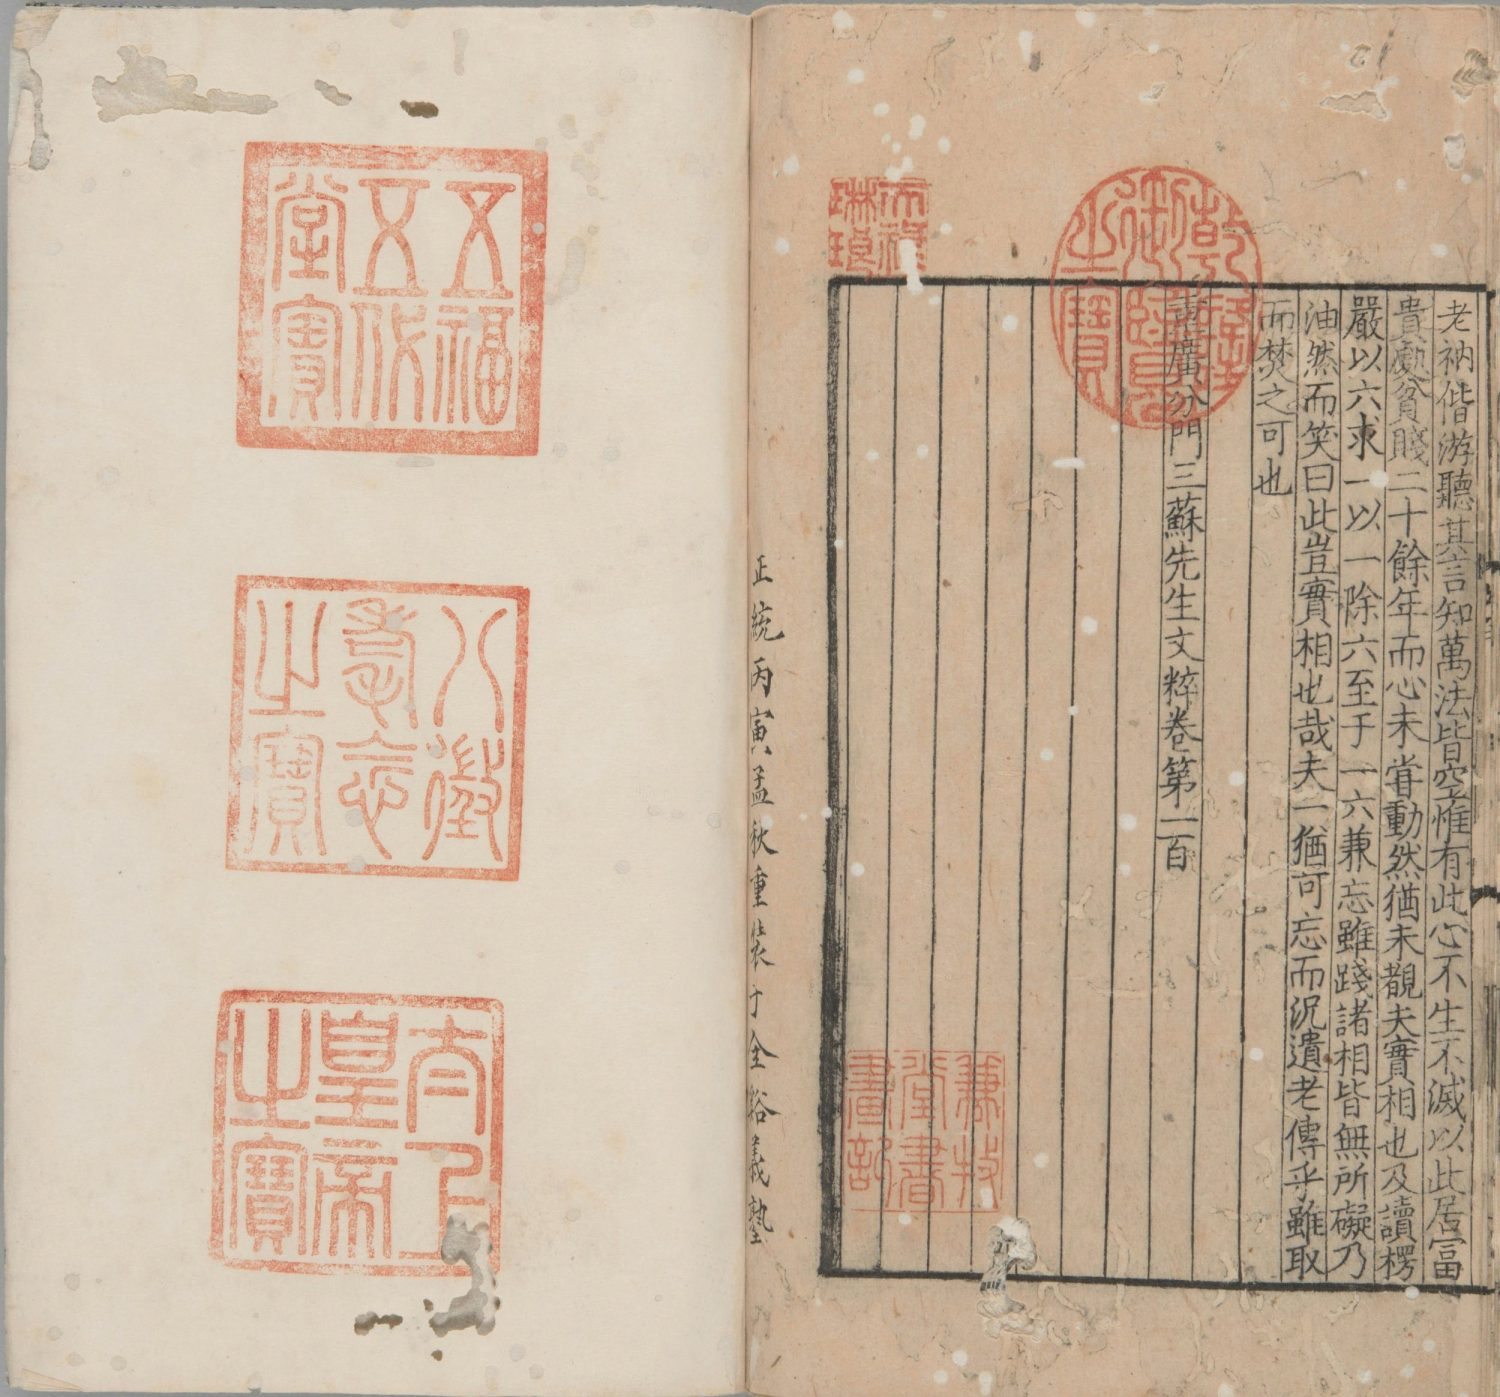 老衲偕游聽其言知萬法皆空惟有此心不生不滅以此居富
貴處貧賤二十餘年而心未甞動然猶未覩夫實相也及讀楞
嚴以六求一以一除六至于一六兼忘雖踐諸相皆無所礙乃
油然而笑曰此豈實相也哉夫一猶可忘而況遺老傳乎雖取
而焚之可也
重廣分門三蘇先生文粹卷第一百
乾隆御覽之寶
天祿琳琅
兼牧堂書畫記
正統丙寅孟秋重裝于全谷義塾
五福五代堂寶
八徵耄念之寶
太上皇帝之寶